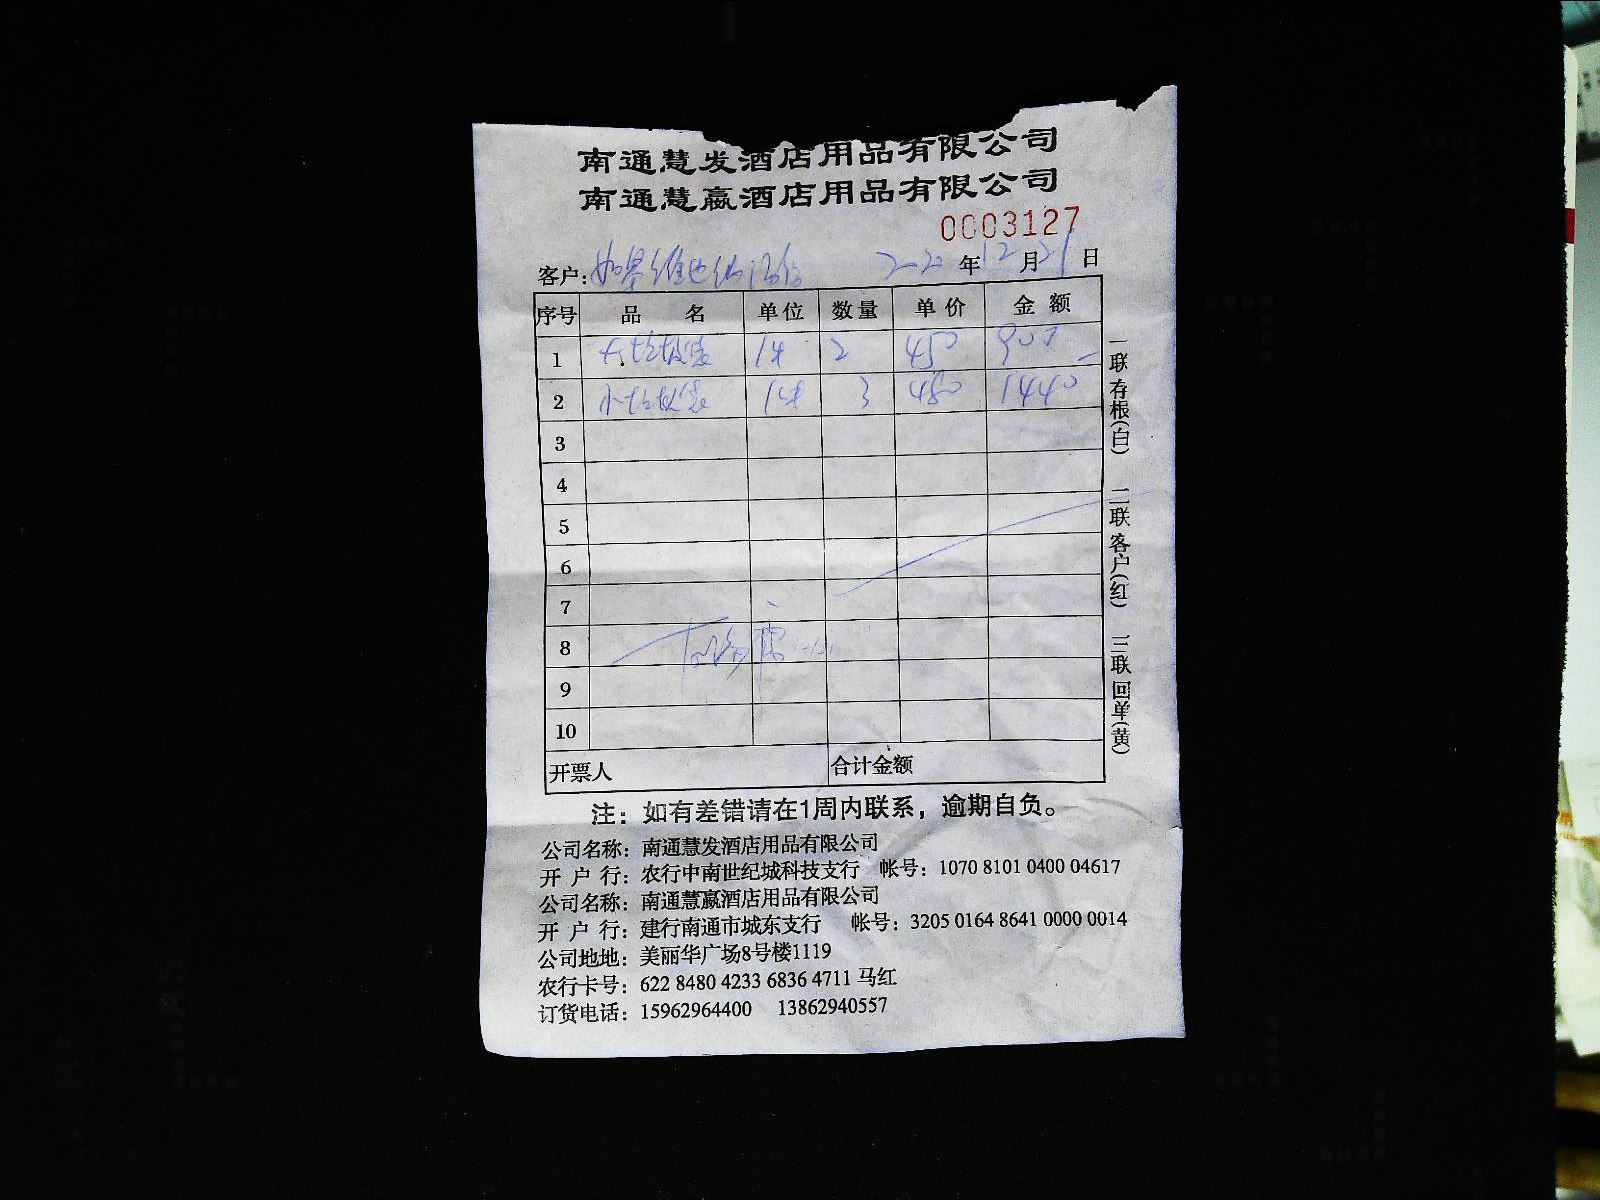 南通慧发酒店用品有限公司
南通慧赢酒店用品有限公司
0003127
客户: 年12月21日
序号 品 名 单位 数量 单价 金额
1 大垃圾袋 件 2 450 900
2 小垃圾袋 件 3 480 1440
3
4
5
6
7
8
9
10
开票人 合计金额
一联存根(白) 二联客户(红) 三联回单(黄)
注：如有差错请在1周内联系，逾期自负。
公司名称：南通慧发酒店用品有限公司
开 户 行：农行中南世纪城科技支行 帐号：1070 8101 0400 04617
公司名称：南通慧赢酒店用品有限公司
开 户 行：建行南通市城东支行 帐号：3205 0164 8641 0000 0014
公司地地：美丽华广场8号楼1119
农行卡号：622 8480 4233 6836 4711 马红
订货电话：15962964400 13862940557